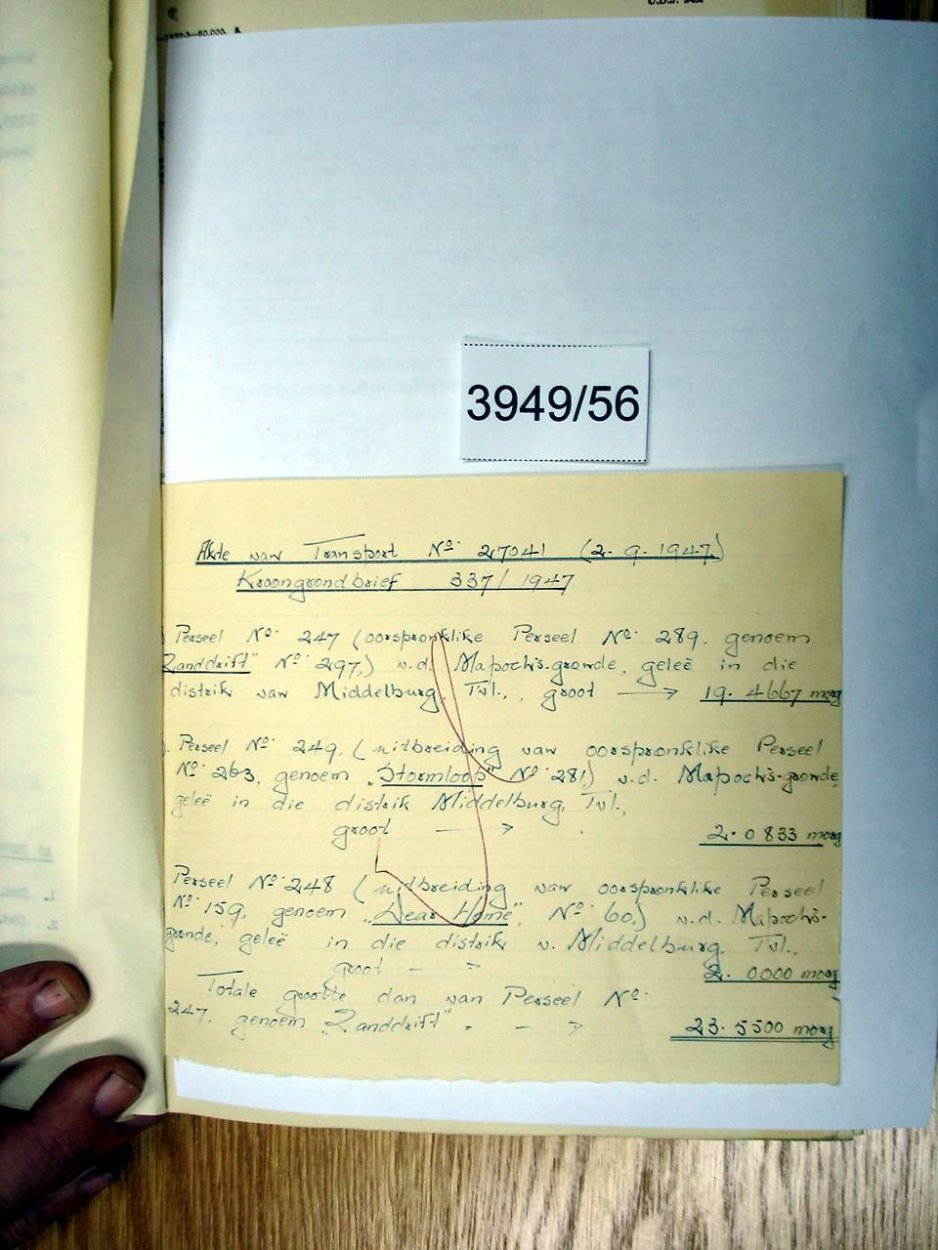 3949/56
Akte van Transport No. 27041 (2.9.1947)
Kroongrondbrief 337/1947
Perseel No. 247 (oorspronklike Perseel No. 289. genoem
Zanddrift" No. 297,) v.d. Mapoch's-gronde, geleë in die
distrik van Middelburg, Tvl., groot → 19.4667 morg
Perseel No. 249, (uitbreiding van oorspronklike Perseel
No. 263, genoem „Stormloop" No. 281,) v.d. Mapoch's-gronde,
geleë in die distrik Middelburg, Tvl.,
groot → 2.0833 morg
Perseel No. 248 (uitbreiding van oorspronklike Perseel
No. 159, genoem „Dear Home", No. 60,) v.d. Mapoch's-
gronde, geleë in die distrik v. Middelburg, Tvl.,
groot → 2.0000 morg
Totale grootte dan van Perseel No.
247. genoem „Zanddrift" - → 23.5500 morg